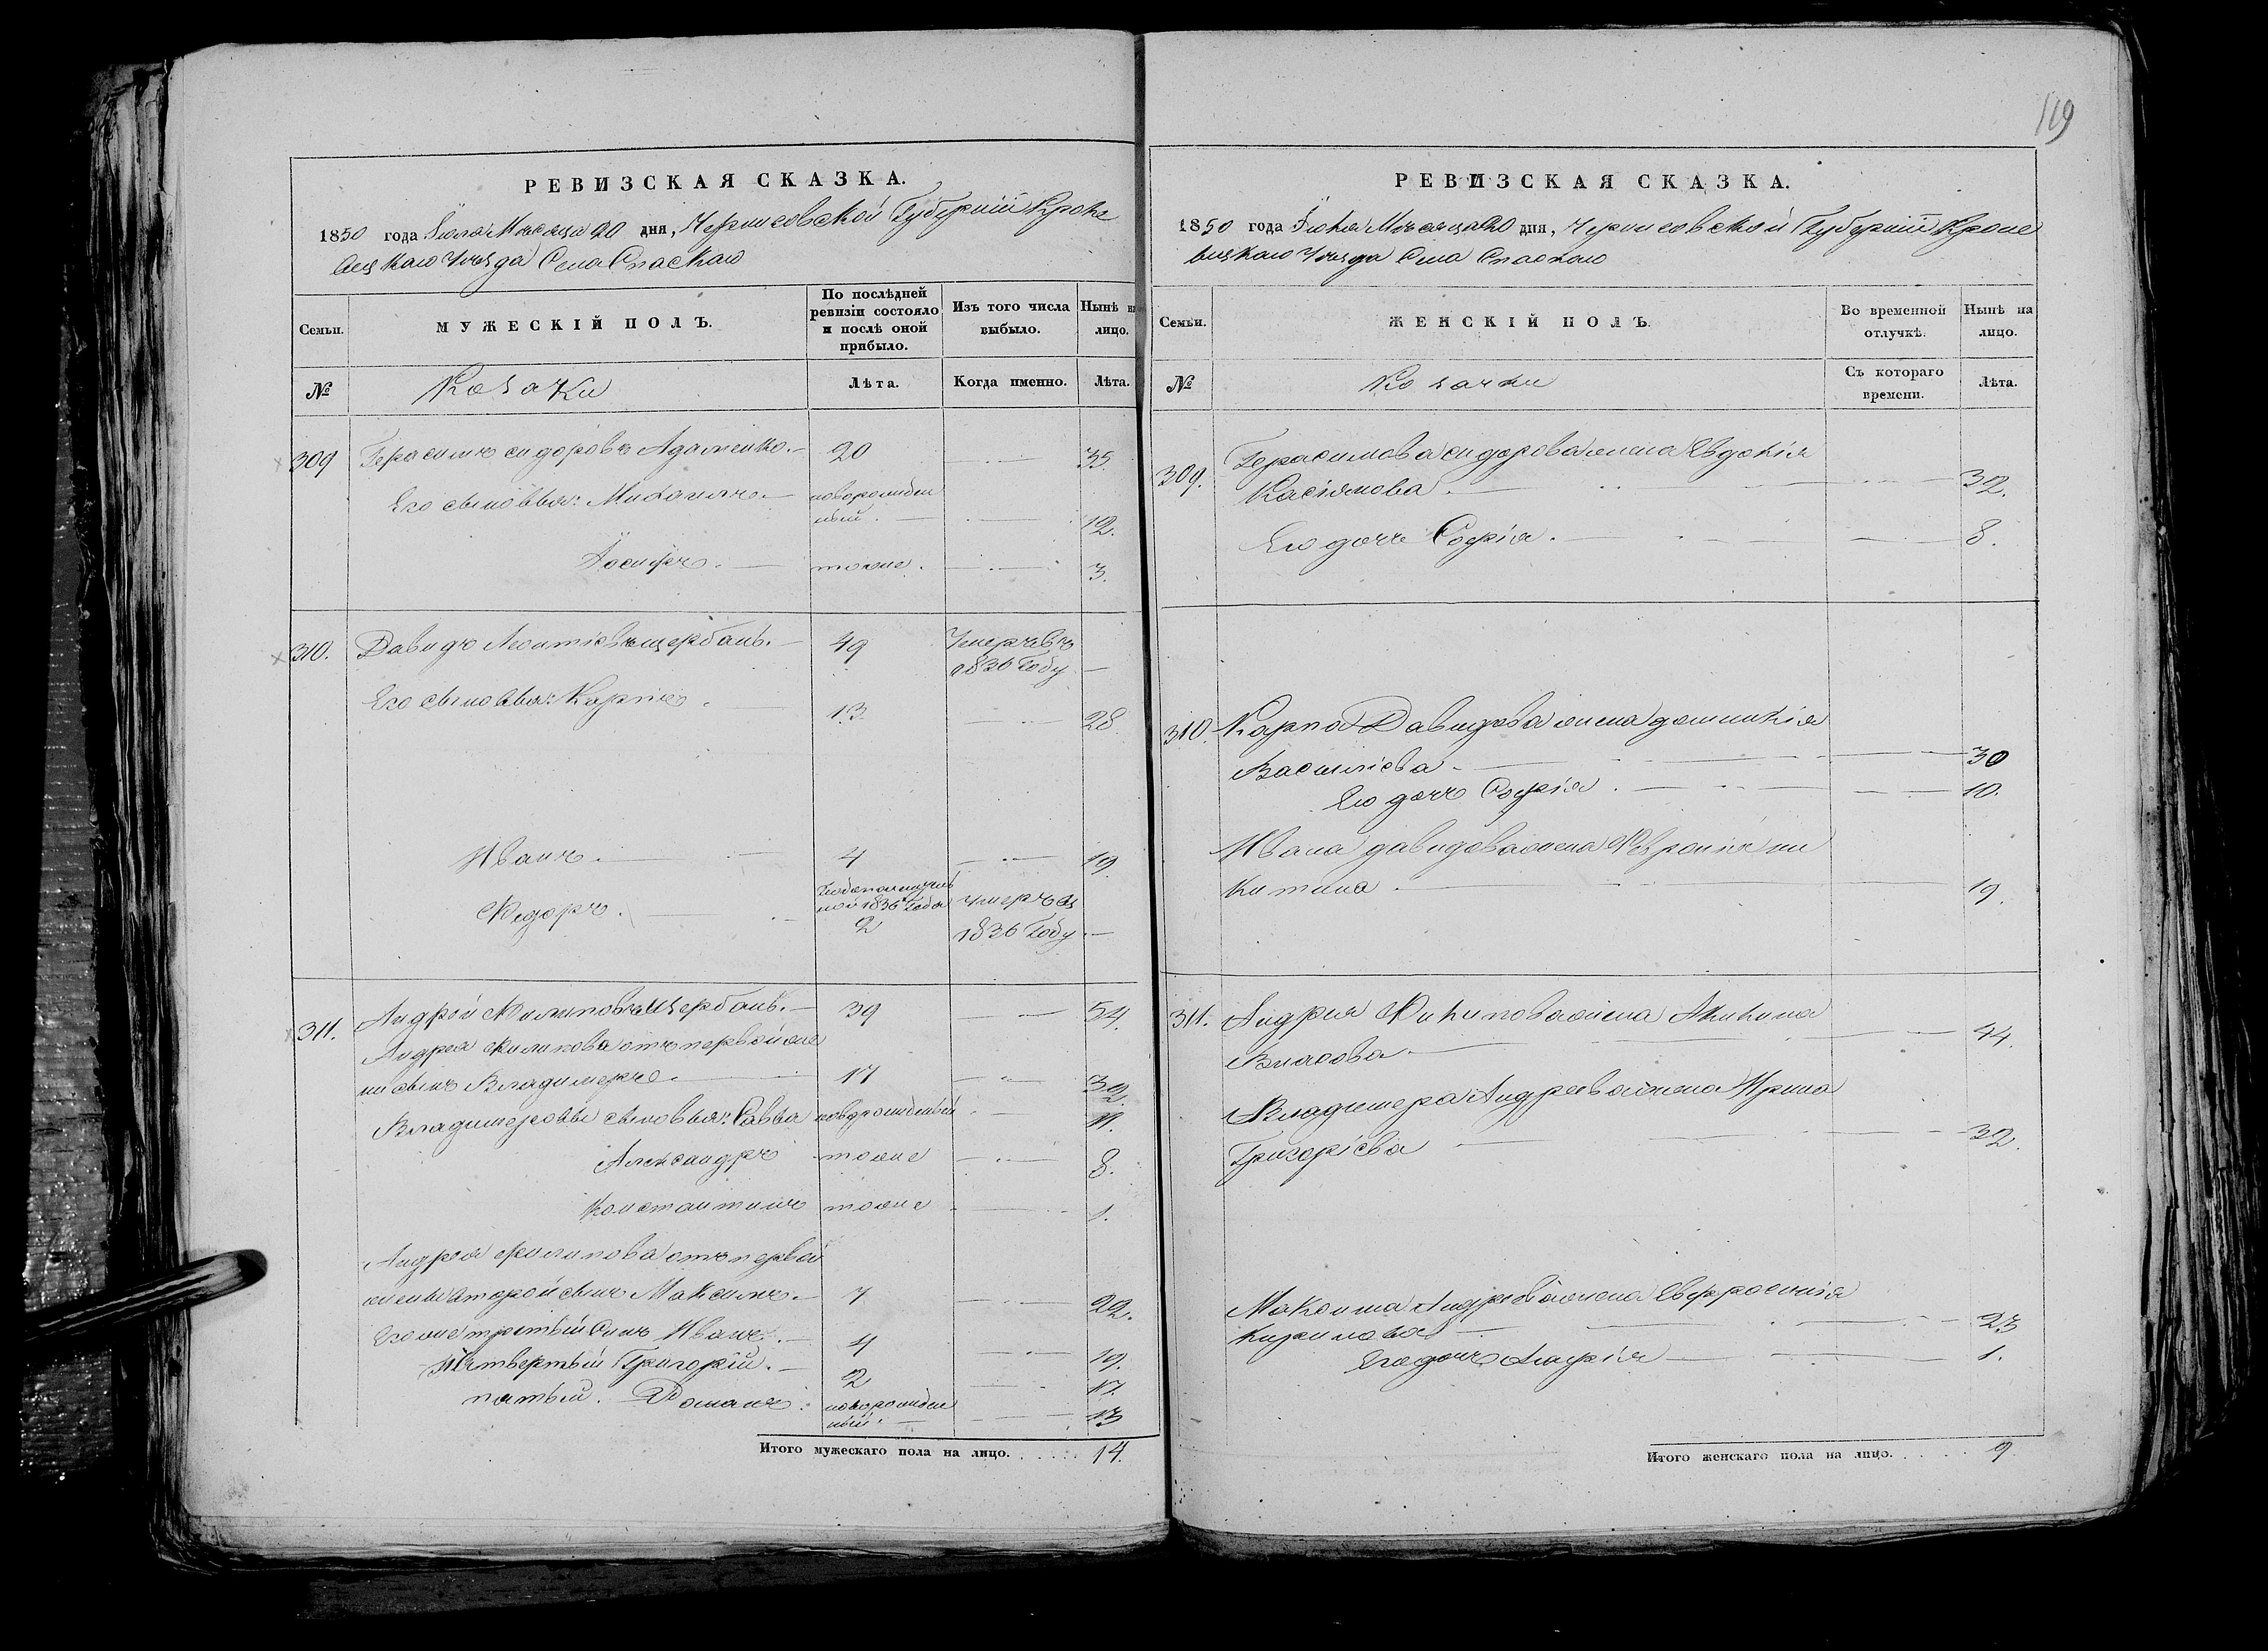 119
РЕВИЗСКАЯ СКАЗКА.
1850 года Июля Месяца 20 дня, Черниговской Губернiи Кроле
вецкаго Уезда Села Спаскаго
Семьи.
МУЖЕСКIЙ ПОЛЪ.
По послѣдней
ревизiи состояло
и послѣ оной
прибыло.
Изъ того числа
выбыло.
Нынѣ на
лицо.
№
Козаки
Лѣта.
Когда именно.
Лѣта.
309 Герасимъ сидоровъ Адаменко. 20 35
Его сыновья: Михаилъ новорожден
ный. 12.
Iосифъ. тоже. 3.
310. Давидъ Леонтiевъ щербань. 49 Умеръ въ
1836 Году
Его сыновья: Карпъ. 13 28
Иванъ. 4 19
Федоръ. 1836 Года умеръ въ
2 1836 Году
311. Андрей Филиповъ Щербань. 39 54.
Андрея Филипова отъ первой же
ни сынъ Владимеръ 17 32.
Владимеровы сыновья: Савва новорожденый 11.
Александръ тоже 8.
Константинъ тоже 1.
Андрея филипова отъ первой
жены второй сынъ Максимъ. 7 22.
Его же третый Сынъ Иванъ. 4 19.
Четвертый Григорiй. 2 17.
пятый. Романъ. новорожден
ный. 13
Итого мужескаго пола на лицо. 14.
РЕВИЗСКАЯ СКАЗКА.
1850 года Июля Месяца 20 дня, Черниговской Губернiи Кроле
вецкаго Уезда Села Спаскаго
Семьи.
ЖЕНСКIЙ ПОЛЪ.
Во временной
отлучкѣ.
Нынѣ на
лицо.
№
Козачки
Съ котораго
времени.
Лѣта.
309. Герасимова сидорова жена Евдокiя
Касiянова. 32.
Его дочь Софiя. 8.
310. Карпа Давидова жена домникiя
Василiева. 30
Его дочь Софiя. 10.
Ивана давидова жена Феврония ни
китина. 19.
311. Андрея Филипова жена Акилина
Власова. 44.
Владимера Андреева жена Ирина
Григорiева 32.
Максима Андреева жена Евфросинiя
Кирилова 23
Его дочь 1.
Итого женскаго пола на лицо. 9